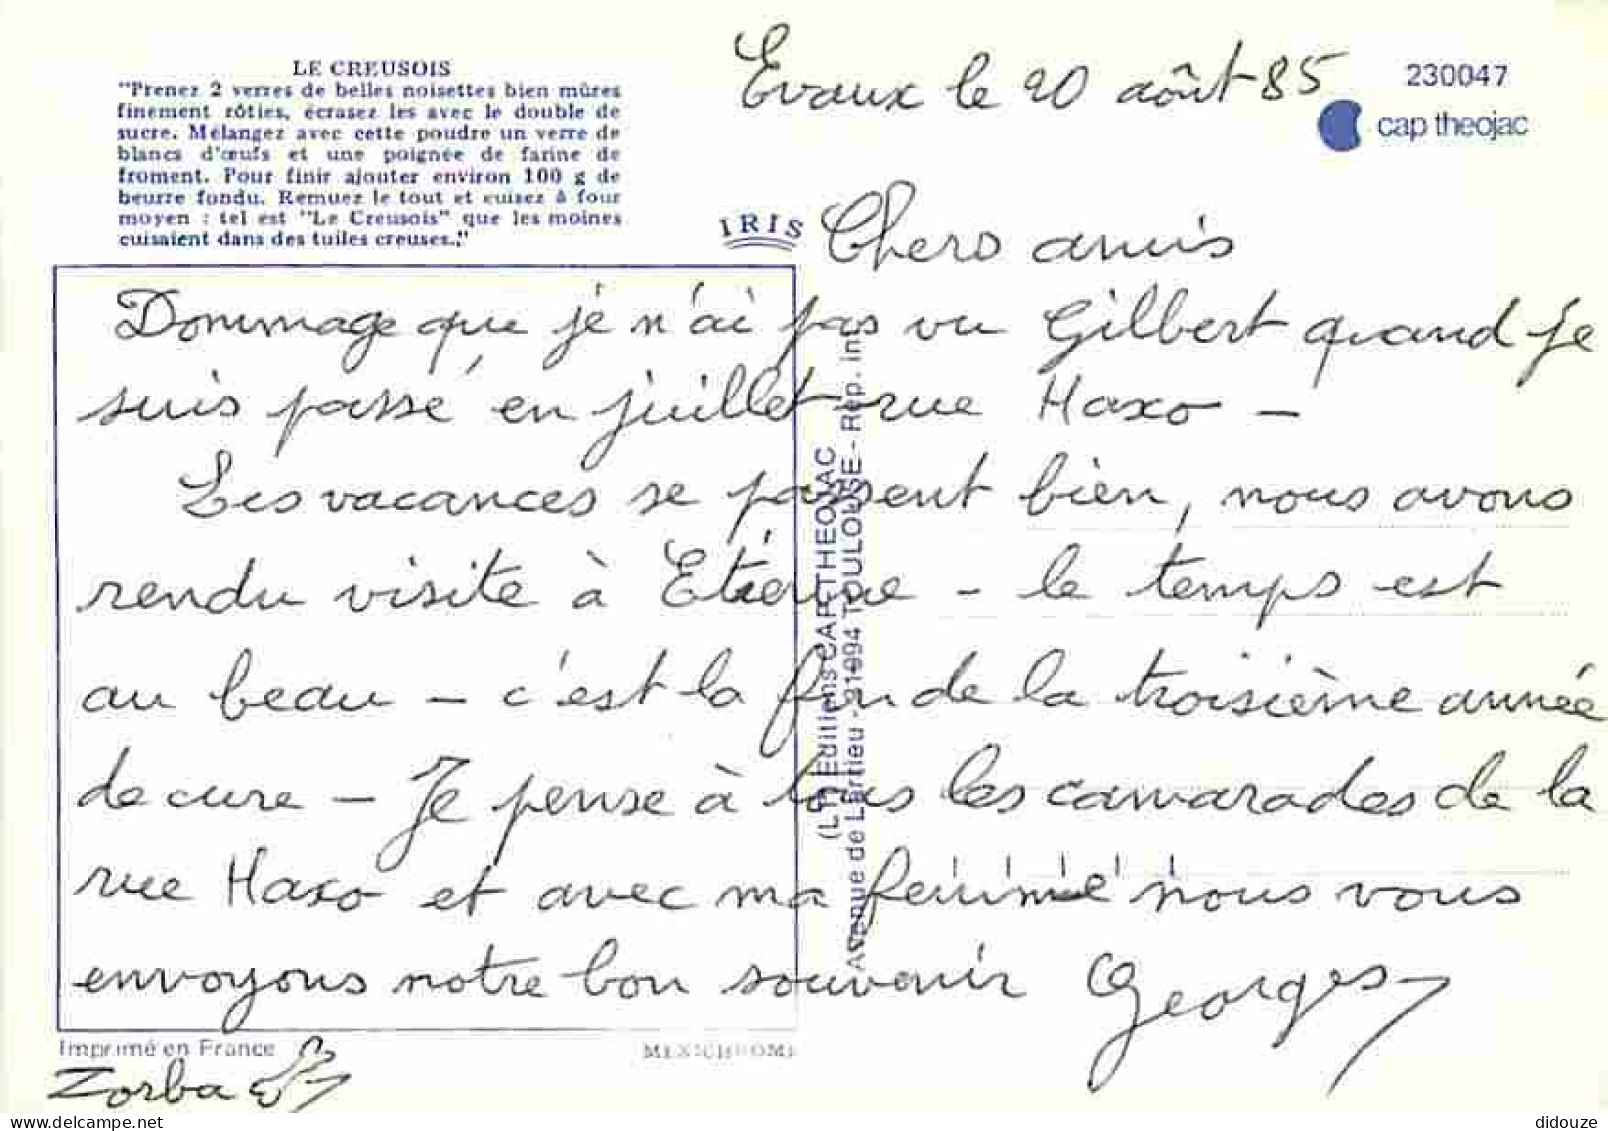 LE CREUSOIS
"Prenez 2 verres de belles noisettes bien mûres
finement rôties, écrasez les avec le double de
sucre. Mélangez avec cette poudre un verre de
blancs d'œufs et une poignée de farine de
froment. Pour finir ajouter environ 100 g de
beurre fondu. Remuez le tout et cuisez à four
moyen : tel est "Le Creusois" que les moines
cuisaient dans des tuiles creuses.."
Evaux le 20 août 85
230047
cap theojac
IRIS
Chers amis
Dommage que je n'ai pas vu Gilbert quand je
suis passé en juillet rue Haxo -
Les vacances se passent bien, nous avons
rendu visite à Etienne - le temps est
au beau - c'est la fin de la troisième année
de cure - Je pense à tous les camarades de la
rue Haxo et avec ma femme nous vous
envoyons notre bon souvenir Georges
(LTE) Editions CAP-THEOJAC
Avenue de Larrieu - 31094 TOULOUSE - Rép. int
Imprimé en France
MEXICHROME
Zorba
didouze